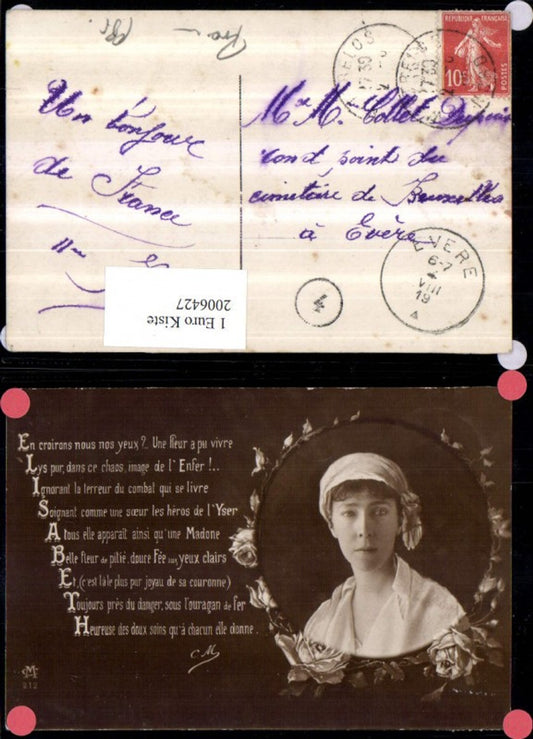 RÉPUBLIQUE FRANÇAISE
10c
POSTES
Un bonjour
de France
Mr M. Collet
rond point du
cimetière de Bruxelles
à Evère
EVERE
6-7
VIII
19
4
1 Euro Kiste
2006427
En croirons nous nos yeux? Une fleur a pu vivre
Lys pur, dans ce chaos, image de l'Enfer!..
Ignorant la terreur du combat qui se livre
Soignant comme une sœur les héros de l'Yser
A tous elle apparaît ainsi qu'une Madone
Belle fleur de pitié, douce Fée aux yeux clairs
Et, (c'est là le plus pur joyau de sa couronne)
Toujours près du danger, sous l'ouragan de fer
Heureuse des doux soins qu'à chacun elle donne.
CM